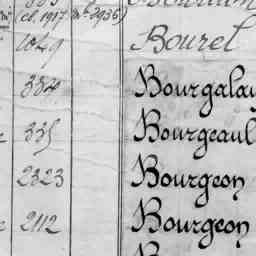 (cl. 1917, m<sup>le</sup> 3936)
1049 Bourel
334 Bourgalay
335 Bourgeaul
2323 Bourgeon
2112 Bourgeon